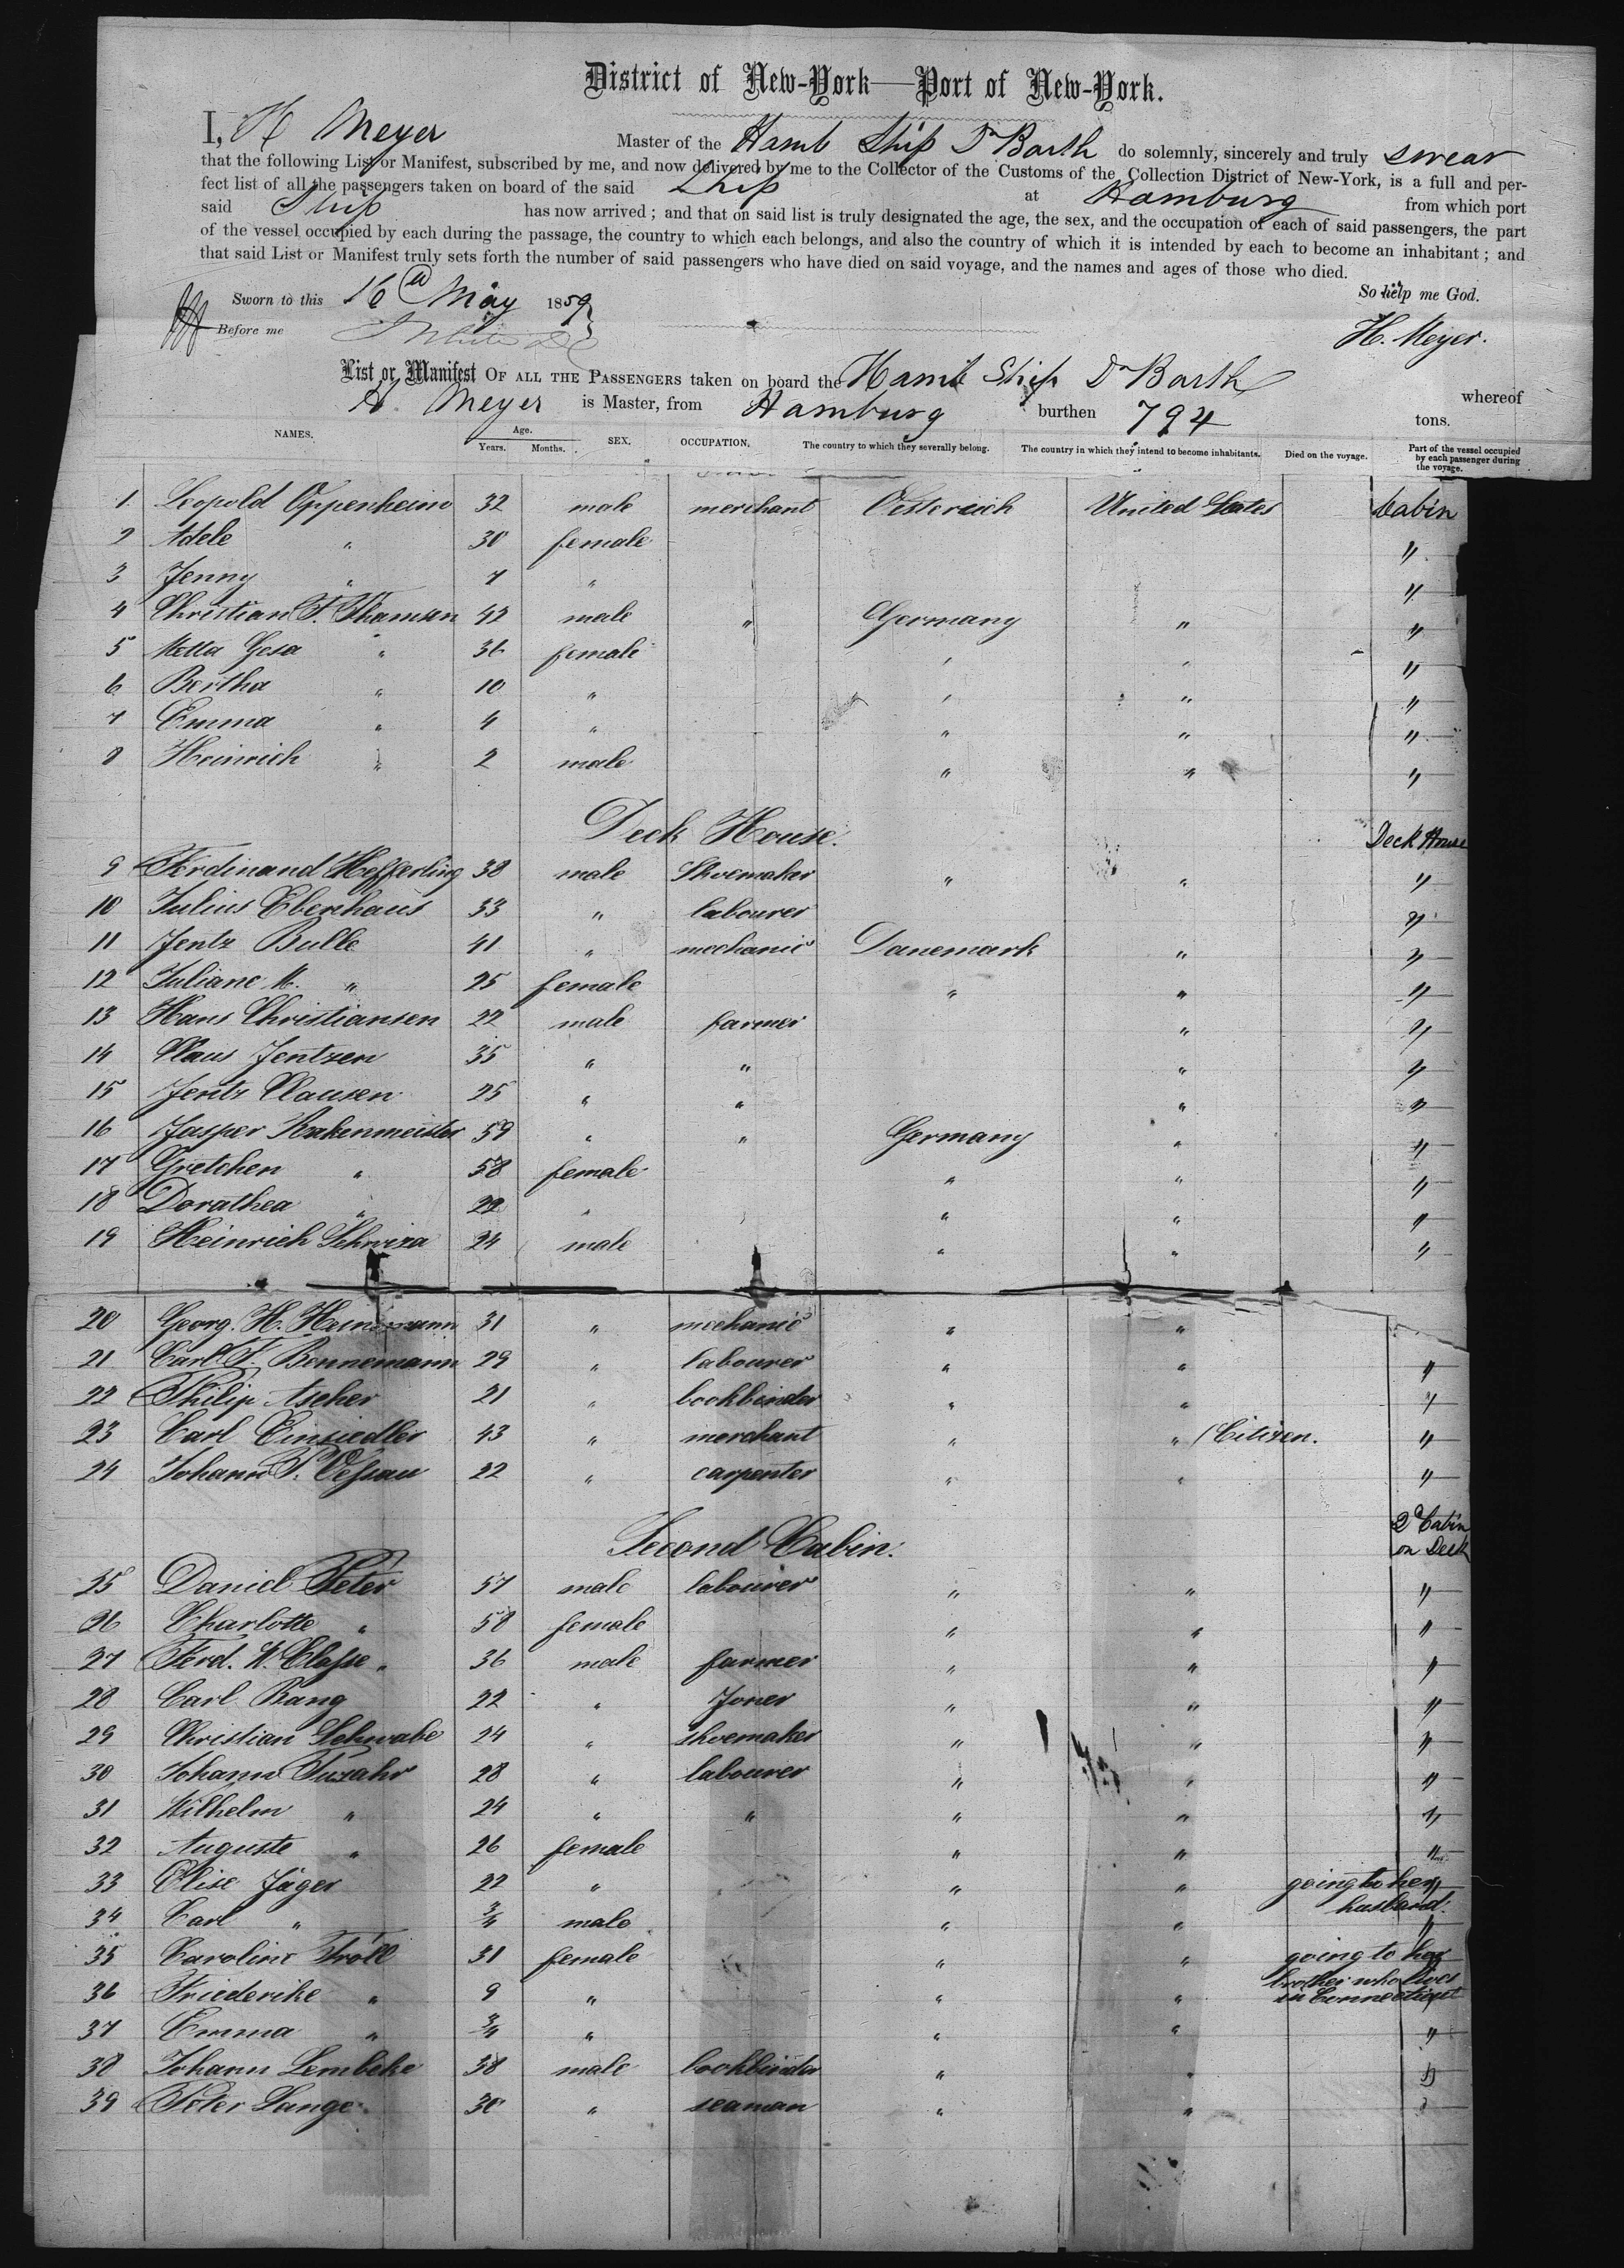 District of New-York—Port of New-York.
I, H Meyer Master of the Hamb Ship Dr Barth do solemnly, sincerely and truly swear
that the following List or Manifest, subscribed by me, and now delivered by me to the Collector of the Customs of the Collection District of New-York, is a full and per-
fect list of all the passengers taken on board of the said Ship at Hamburg from which port
said Ship has now arrived; and that on said list is truly designated the age, the sex, and the occupation of each of said passengers, the part
of the vessel occupied by each during the passage, the country to which each belongs, and also the country of which it is intended by each to become an inhabitant; and
that said List or Manifest truly sets forth the number of said passengers who have died on said voyage, and the names and ages of those who died.
So help me God.
Sworn to this 16th May 1859
H. Meyer.
Before me
List or Manifest OF ALL THE PASSENGERS taken on board the Hamb Ship Dr Barth whereof
H. Meyer is Master, from Hamburg burthen 794 tons.
NAMES. Age. Years. Months. SEX. OCCUPATION. The country to which they severally belong. The country in which they intend to become inhabitants. Died on the voyage. Part of the vessel occupied by each passenger during the voyage.
1. Leopold Oppenheim 32 male merchant Oestereich United States Cabin
2 Adele " 30 female "
3 Jenny " 7 " "
4 Christian F. Thamsen 42 male " Germany " "
5 Metta Gesa " 36 female " " "
6 Bertha " 10 " " " "
7 Emma " 4 " " " "
8 Heinrich " 2 male " " "
Deck House. Deck House
9 Ferdinand Hefferling 38 male Shoemaker " " "
10 Julius Ebenhaus 33 " labourer "
11 Jentz Bulle 41 " mechanic Danemark " "
12 Juliane M. " 25 female " " "
13 Hans Christiansen 22 male farmer " "
14 Claus Jentzen 35 " " " "
15 Jentz Clausen 25 " " " "
16 Jasper Krakenmeister 59 " " Germany " "
17 Gretchen " 58 female " " "
18 Dorathea " 22 " " " "
19 Heinrich Schwiza 24 male " " "
20 Georg. H. 31 " mechanic " "
21 Carl F. Bennemann 29 " labourer " " "
22 Philip Ascher 21 " bookbinder " " "
23 Carl Einsiedler 43 " merchant " " (Citizen. "
24 Johann P. Vessau 22 " carpenter " " "
Second Cabin. 2d Cabin on Deck
25 Daniel Peter 57 male labourer " " "
26 Charlotte " 58 female " " "
27 Ferd. W. Classe " 36 male farmer " " "
28 Carl Rang 22 " Joner " " "
29 Christian Schwabe 24 " shoemaker " " "
30 Johann Tuzahr 28 " labourer " " "
31 Wilhelm " 24 " " " " "
32 Auguste " 26 female " " "
33 Elise Jäger 22 " " " going to her husband. "
34 Carl " 3/4 male " " "
35 Caroline Tröll 31 female " " going to her brother who lives in Connecticut "
36 Friederike " 9 " " " "
37 Emma " 3/4 " " " "
38 Johann Lembcke 38 male bookbinder " " "
39 Peter Lange 30 " seaman " " "